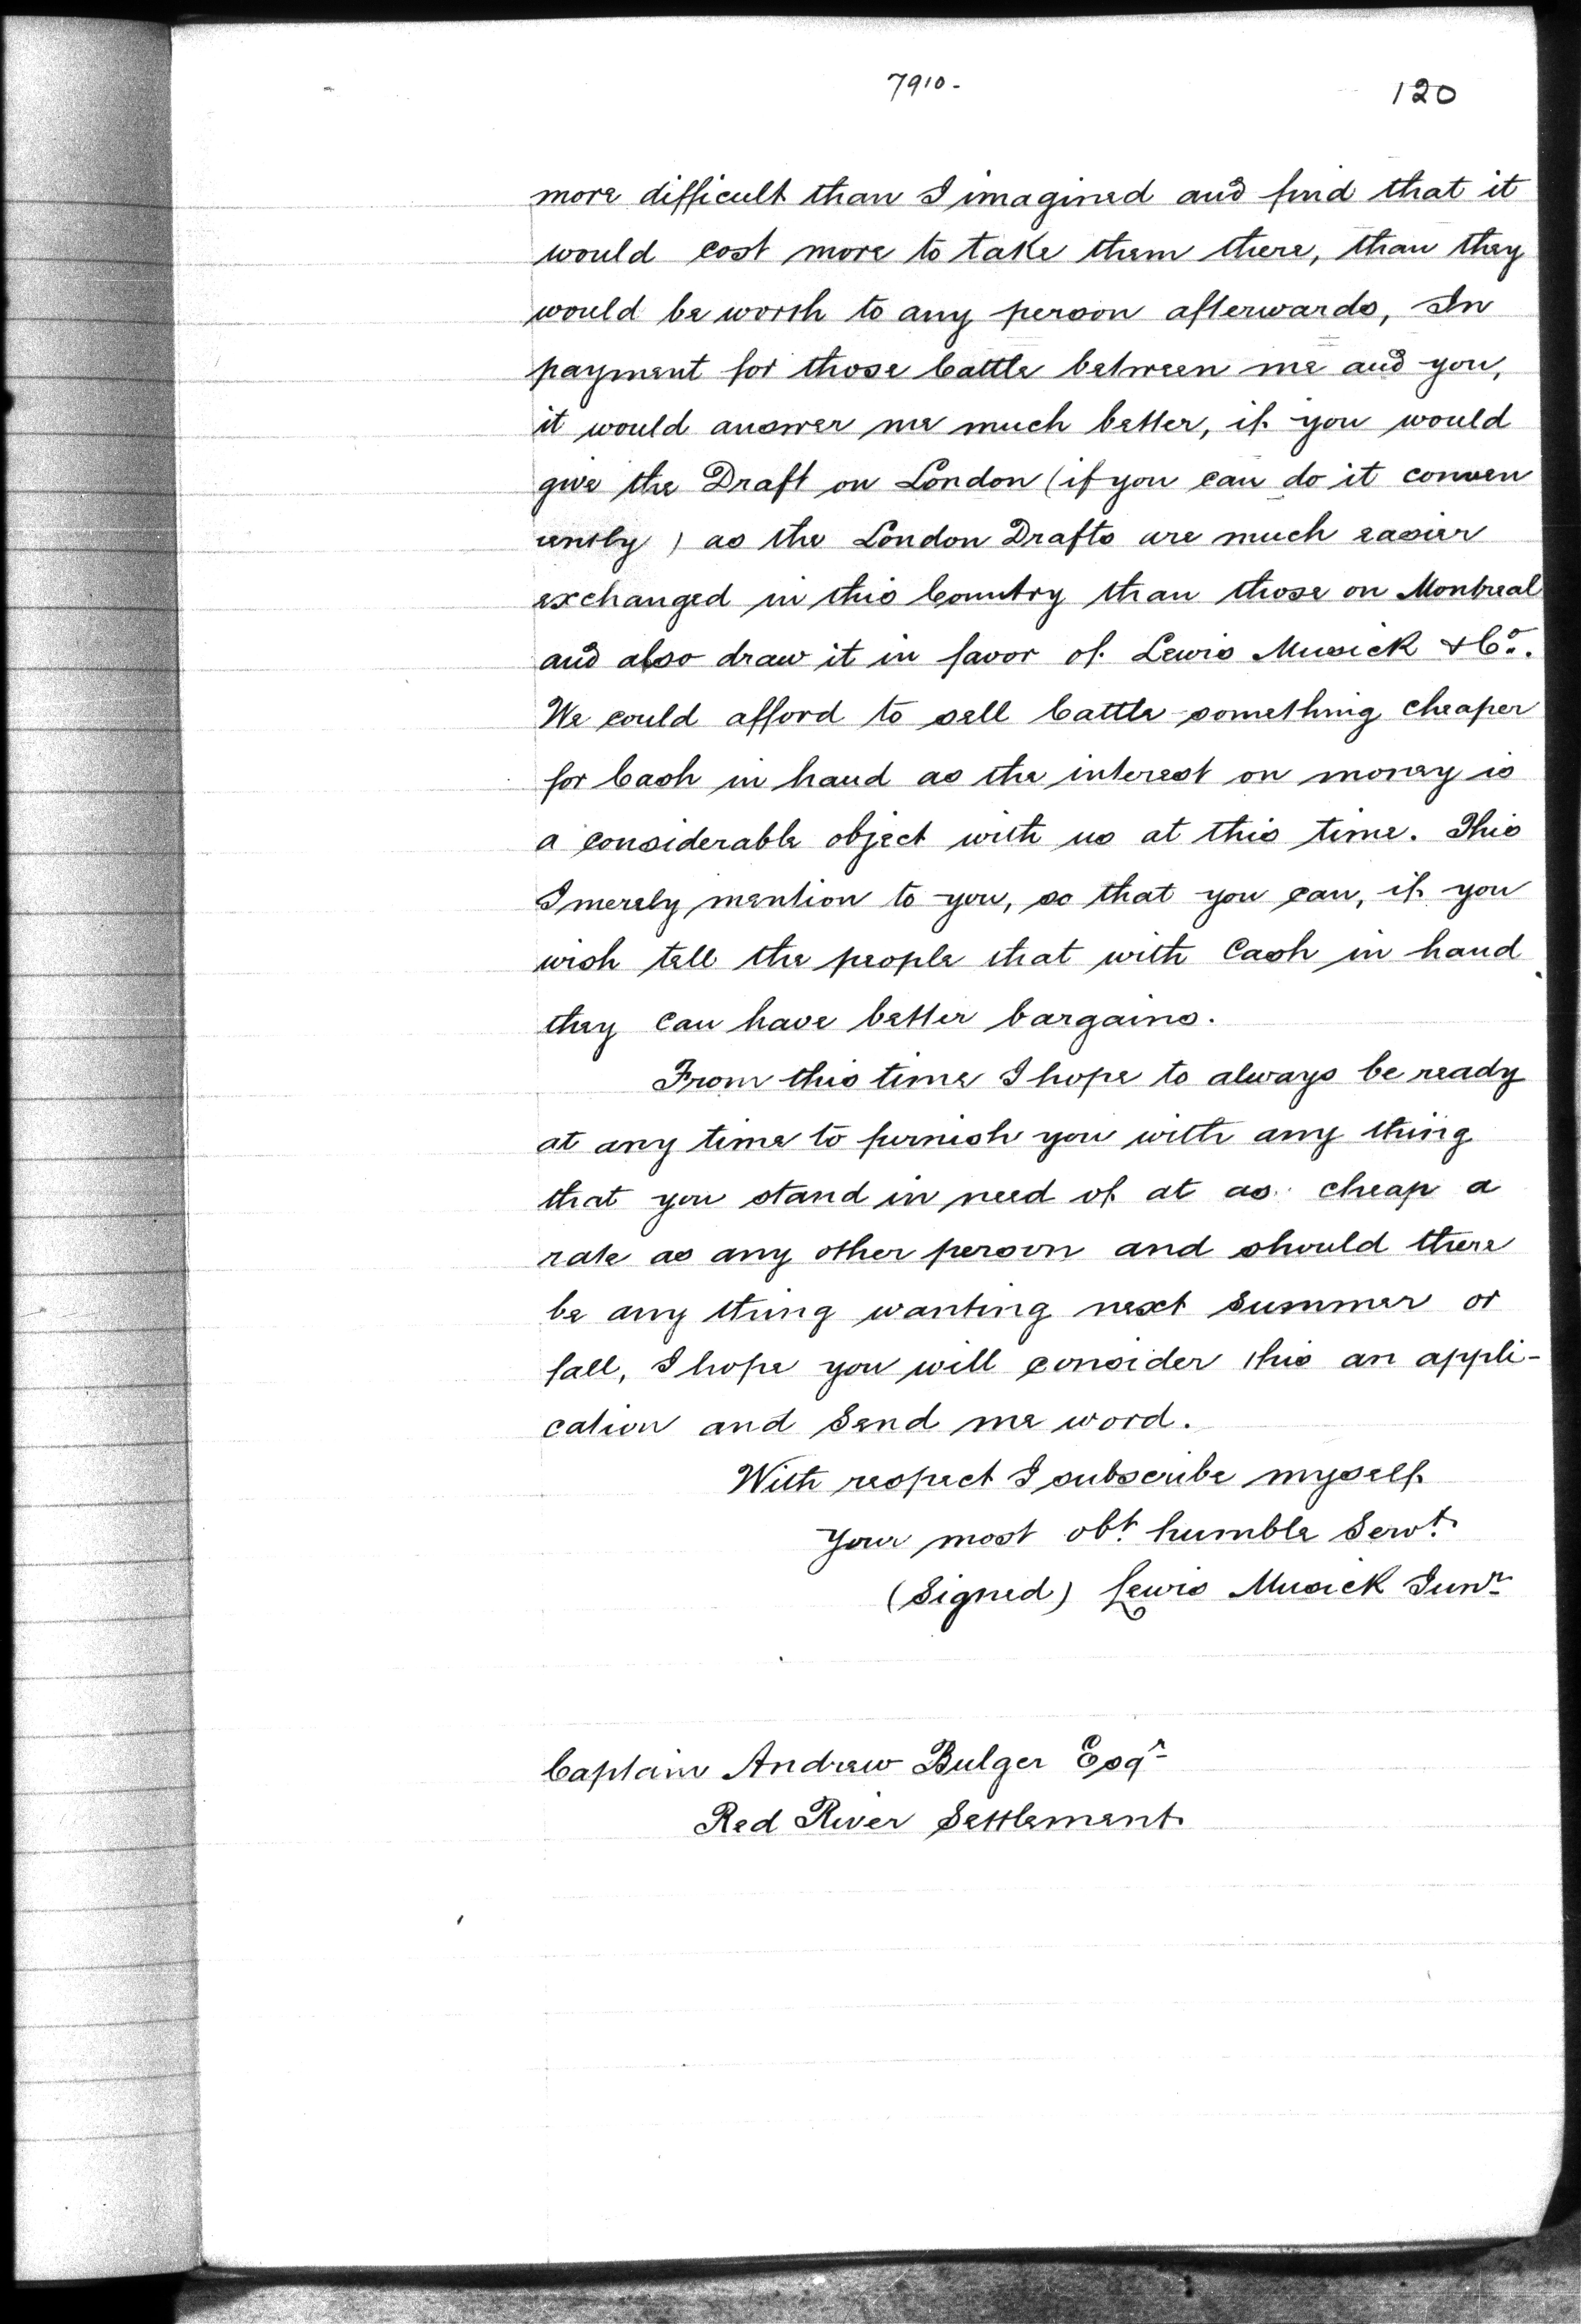 7910-
120
more difficult than I imagined and find that it
would cost more to take them there, than they
would be worth to any person afterwards, In
payment for those Cattle between me and you,
it would answer me much better, if you would
give the Draft on London (if you can do it conven
iently) as the London Drafts are much easier
exchanged in this Country than those on Montreal
and also draw it in favor of Lewis Musick & Co.
We could afford to sell Cattle something cheaper
for Cash in hand as the interest on money is
a considerable object with us at this time. This
I merely mention to you, so that you can, if you
wish tell the people that with Cash in hand
they can have better bargains.
From this time I hope to always be ready
at any time to furnish you with any thing
that you stand in need of at as cheap a
rate as any other person and should there
be any thing wanting next Summer or
fall, I hope you will consider this an appli-
cation and Send me word.
With respect I subscribe myself
Your most obt. humble Servt.
(Signed) Lewis Musick Junr
Captain Andrew Bulger Esqr
Red River Settlement